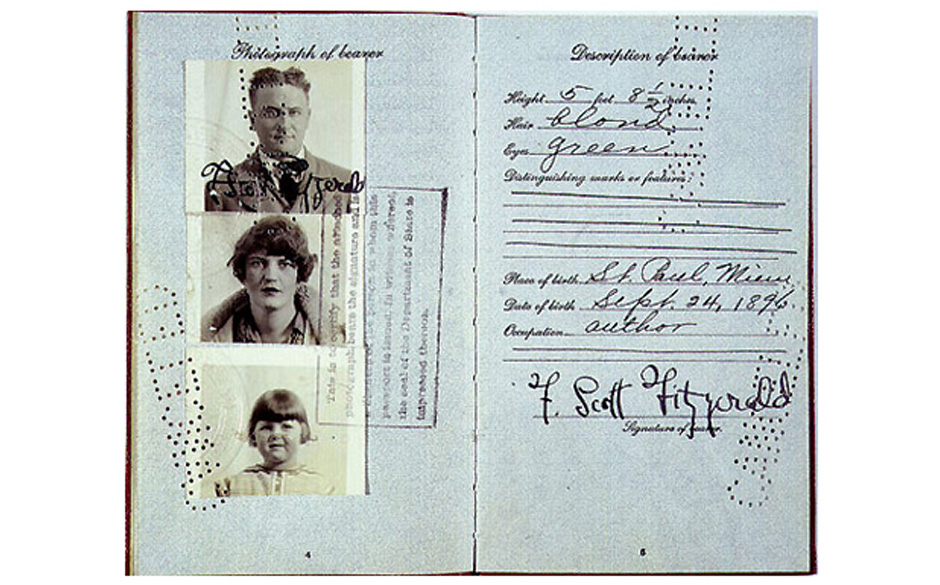 Photograph of bearer
F. Scott Fitzgerald
This is to certify that the attached
photograph bears the signature and is
a likeness of the person to whom this
passport is issued. In witness whereof
the seal of the Department of State is
impressed thereon.
4
Description of bearer
Height 5 feet 8 1/2 inches.
Hair blond
Eyes green
Distinguishing marks or features:
Place of birth St. Paul, Minn
Date of birth Sept. 24, 1896
Occupation author
F. Scott Fitzgerald
Signature of bearer.